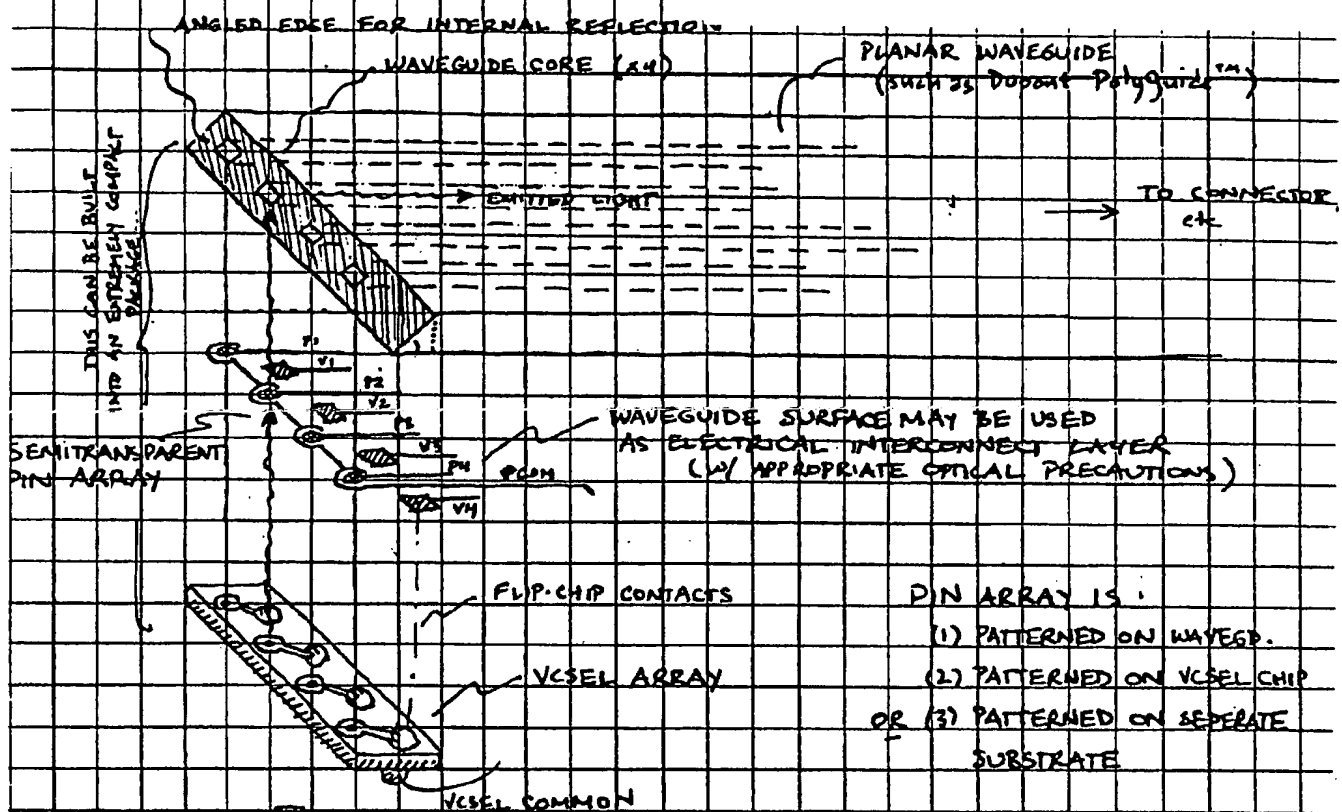 ANGLED EDGE FOR INTERNAL REFLECTION
WAVEGUIDE CORE (x4)
PLANAR WAVEGUIDE
(such as Dupont Polyguide™)
THIS CAN BE BUILT
INTO AN EXTREMELY COMPACT
PACKAGE
EMITTED LIGHT
TO CONNECTOR
etc
P1
V1
P2
V2
P3
V3
P4
V4
PCOM
SEMITRANSPARENT
PIN ARRAY
WAVEGUIDE SURFACE MAY BE USED
AS ELECTRICAL INTERCONNECT LAYER
(W/ APPROPRIATE OPTICAL PRECAUTIONS)
FLIP-CHIP CONTACTS
VCSEL ARRAY
VCSEL COMMON
PIN ARRAY IS:
(1) PATTERNED ON WAVEGD.
(2) PATTERNED ON VCSEL CHIP
OR (3) PATTERNED ON SEPERATE
SUBSTRATE